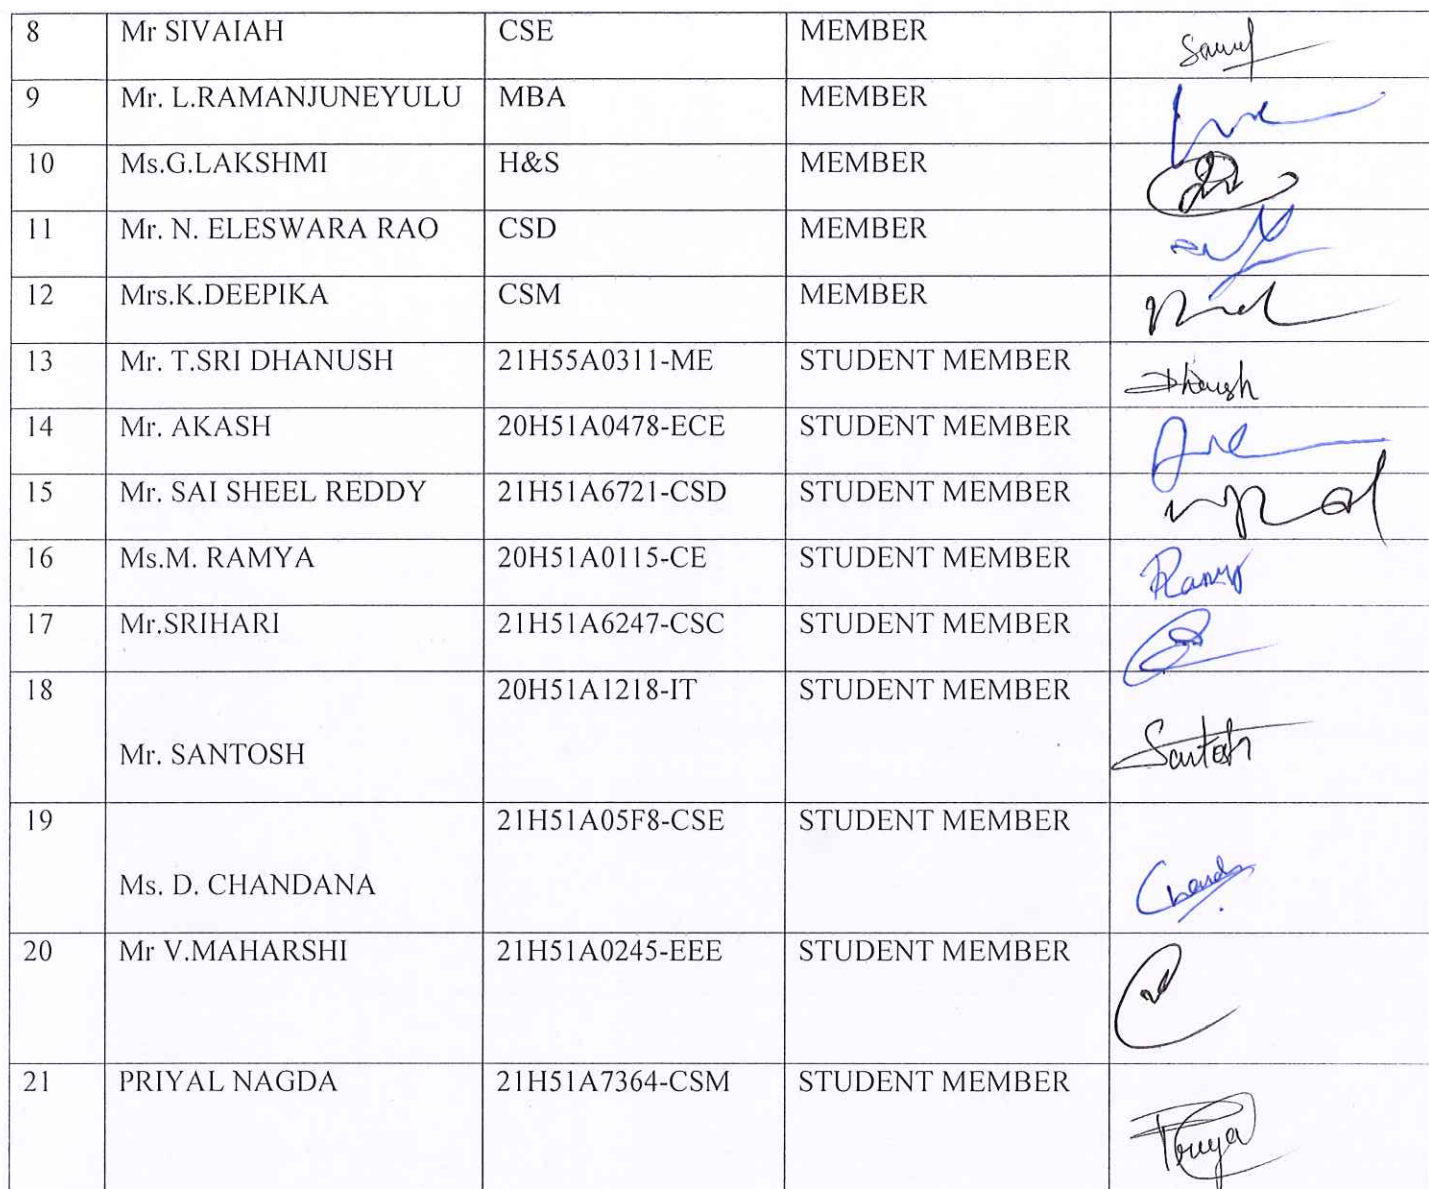 8 Mr SIVAIAH CSE MEMBER
9 Mr. L.RAMANJUNEYULU MBA MEMBER
10 Ms.G.LAKSHMI H&S MEMBER
11 Mr. N. ELESWARA RAO CSD MEMBER
12 Mrs.K.DEEPIKA CSM MEMBER
13 Mr. T.SRI DHANUSH 21H55A0311-ME STUDENT MEMBER Dhanush
14 Mr. AKASH 20H51A0478-ECE STUDENT MEMBER
15 Mr. SAI SHEEL REDDY 21H51A6721-CSD STUDENT MEMBER
16 Ms.M. RAMYA 20H51A0115-CE STUDENT MEMBER Ramya
17 Mr.SRIHARI 21H51A6247-CSC STUDENT MEMBER
18 20H51A1218-IT STUDENT MEMBER
Mr. SANTOSH Santosh
19 21H51A05F8-CSE STUDENT MEMBER
Ms. D. CHANDANA
20 Mr V.MAHARSHI 21H51A0245-EEE STUDENT MEMBER
21 PRIYAL NAGDA 21H51A7364-CSM STUDENT MEMBER
Priya